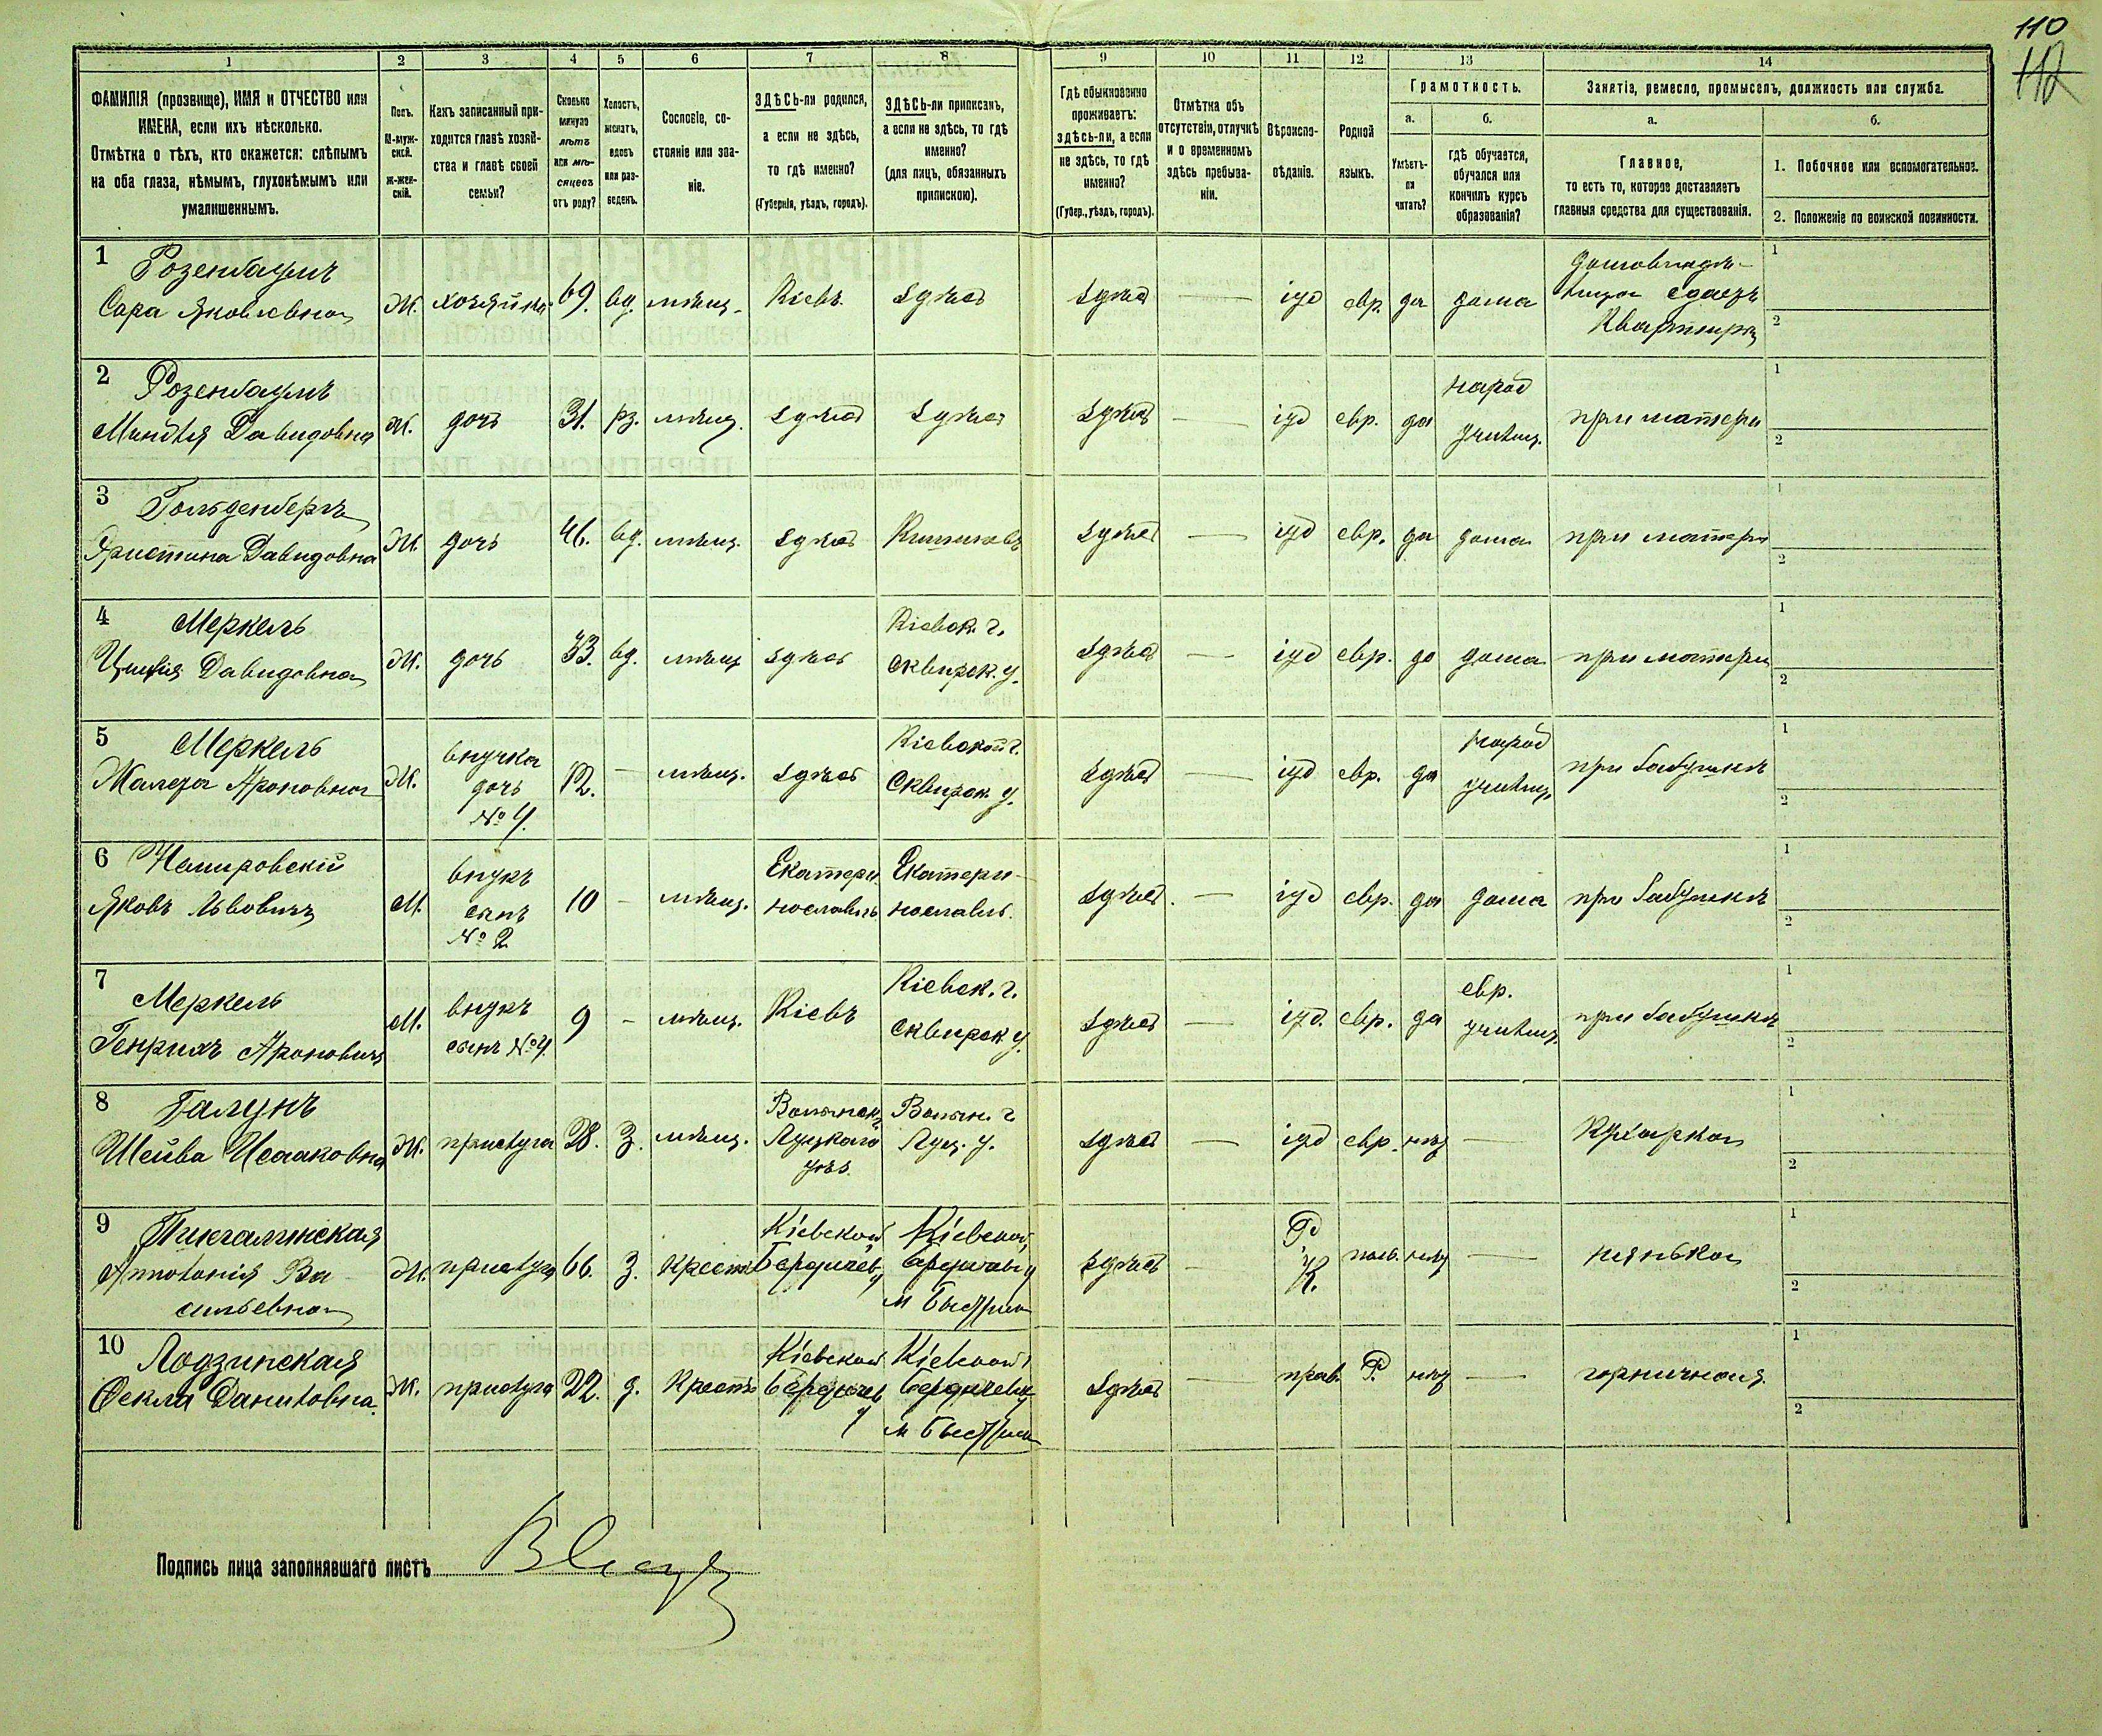 110
112
1 2 3 4 5 6 7 8 9 10 11 12 13 14
ФАМИЛІЯ (прозвище), ИМЯ и ОТЧЕСТВО или
ИМЕНА, если ихъ нѣсколько.
Отмѣтка о тѣхъ, кто окажется: слѣпымъ
на оба глаза, нѣмымъ, глухонѣмымъ или
умалишеннымъ.
Полъ.
М-муж-
ской.
Ж-жен-
скій.
Какъ записанный при-
ходится главѣ хозяй-
ства и главѣ своей
семьи?
Сколько
минуло
лѣтъ
или мѣ-
сяцевъ
отъ роду?
Холостъ,
женатъ,
вдовъ
или раз-
веденъ.
Сословіе, со-
стояніе или зва-
ніе.
ЗДѢСЬ-ли родился,
а если не здѣсь,
то гдѣ именно?
(Губернія, уѣздъ, городъ).
ЗДѢСЬ-ли приписанъ,
а если не здѣсь, то гдѣ
именно?
(для лицъ, обязанныхъ
припискою).
Гдѣ обыкновенно
проживаетъ:
здѣсь-ли, а если
не здѣсь, то гдѣ
именно?
(Губер., уѣздъ, городъ).
Отмѣтка объ
отсутствіи, отлучкѣ
и о временномъ
здѣсь пребыва-
ніи.
Вѣроиспо-
вѣданіе.
Родной
языкъ.
Грамотность.
а.
Умѣетъ-
ли
читать?
б.
гдѣ обучается,
обучался или
кончилъ курсъ
образованія?
Занятіе, ремесло, промыселъ, должность или служба.
а.
Главное,
то есть то, которое доставляетъ
главныя средства для существованія.
б.
1. Побочное или вспомогательное.
2. Положеніе по воинской повинности.
1 Розенбаумъ
Сара Яковлевна
Ж. хозяйка 69. вд. мѣщ. Кіевъ здѣсь здѣсь — іуд евр. да дома
домовладѣ-
лица сдаетъ
Квартиры
1
2
2 Розенбаумъ
Миндля Давидовна
Ж. дочь 31. рз. мѣщ. здѣсь здѣсь здѣсь — іуд евр. да
народ
училищ.
при матери
1
2
3 Гольденбергъ
Христина Давидовна
Ж. дочь 46. вд. мѣщ. здѣсь Кишиневъ здѣсь — іуд евр. да дома при матери
1
2
4 Меркель
Давидовна
Ж. дочь 33. вд. мѣщ здѣсь
Кіевск. г.
Сквирск. у.
здѣсь — іуд евр. да дома при матери
1
2
5 Меркель
Ароновна
Ж.
внучка
дочь
№ 4.
12. — мѣщ. здѣсь
Кіевской г.
Сквирск. у.
здѣсь — іуд евр. да
народ
училищ.
при бабушкѣ
1
2
6 Немировскій
Яковъ Львовичъ
М.
внукъ
сынъ
№ 2
10 — мѣщ.
Екатери-
нославль
Екатери-
нославль.
здѣсь. — іуд евр. да дома при бабушкѣ
1
2
7 Меркель
Генрихъ Ароновичъ
М.
внукъ
сынъ № 4.
9 — мѣщ. Кіевъ
Кіевск. г.
Сквирск у.
здѣсь — іуд. евр. да
евр.
училищ.
при бабушкѣ
1
2
8 Галунъ
Шейва Исааковна
Ж. прислуга 28. З. мѣщ.
Волынск.
Луцкаго
уѣз.
Волын. г
Луц. у.
здѣсь — іуд евр. нѣтъ — Кухарка
1
2
9
Антонія Ва-
сильевна
Ж. прислуга 66. З. крест.
Кіевской
Бердичев.
у
Кіевской
Бердичев. у
м Быстрик
здѣсь —
Р
К.
пол. нѣтъ — нянька
1
2
10 Лодзинская
Фекла Даниловна.
Ж. прислуга 22. д. крест.
Кіевской
Бердичев
у
Кіевской
Бердичев. у
м Быстрик
здѣсь — прав. Р. нѣтъ — горничная.
1
2
Подпись лица заполнявшаго листъ